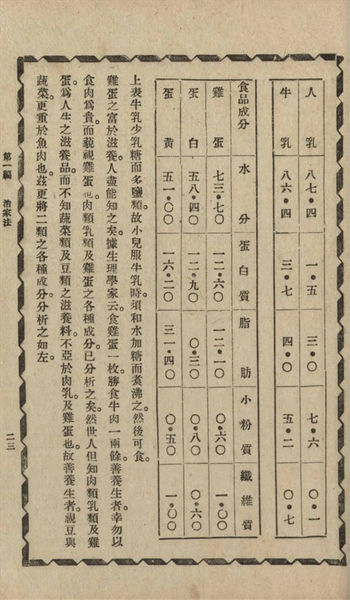 人乳 八七•四 一•五 三•〇 七•六 〇•一
牛乳 八六•四 三•七 四•〇 五•二 〇•七
食品成分 水分 蛋白質 脂肪 小粉質 纖維質
雞蛋 七三•七〇 一二•六〇 一二•一〇 〇•六〇 一•〇〇
蛋白 五八•四〇 一二•九〇 〇•三〇 〇•八〇 〇•六〇
蛋黃 五一•〇〇 一六•二〇 三一•四〇 〇•五〇 一•〇〇
上表牛乳少乳糖而多鹽類。故小兒服牛乳時。須和水加糖而煑沸之。然後可食。
雞蛋之富於滋養。人盡能知之矣。據生理學家云。食雞蛋一枚。勝食牛肉一兩餘。善養生者。幸勿以
食肉爲貴。而藐視雞蛋也。肉類乳類及雞蛋之各種成分。已分析之矣。然世人但知肉類乳類及雞
蛋。爲人生之滋養品。而不知蔬菜類及豆類之滋養料。不亞於肉乳。及雞蛋也。故善養生者。視豆與
蔬菜。更重於魚肉也。茲更將二類之各種成分。分析之如左。
第一編 治家法 二三